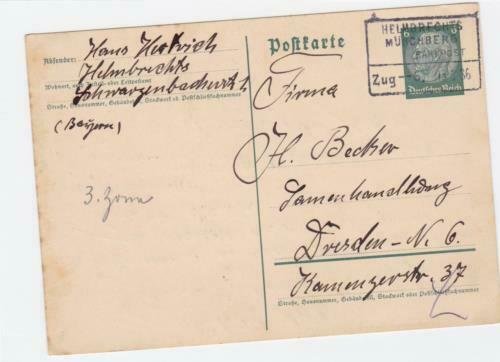 Absender:
Hans Hertrich
Helmbrechts
Wohnort, auch Zustell- oder Leitpostamt
Schwarzenbacherst. 1
Straße, Hausnummer, Gebäudeteil, Stockwerk od. Postschließfachnummer
(Bayern)
3. Zone
Postkarte
HELMBRECHTS
MÜNCHBERG
BAHNPOST
Zug
36
Deutsches Reich
Firma
H. Becker
Samenhandlung
Dresden-N. 6.
Kamenzerstr. 37
Straße, Hausnummer, Gebäudeteil, Stockwerk oder Postschließfachnummer